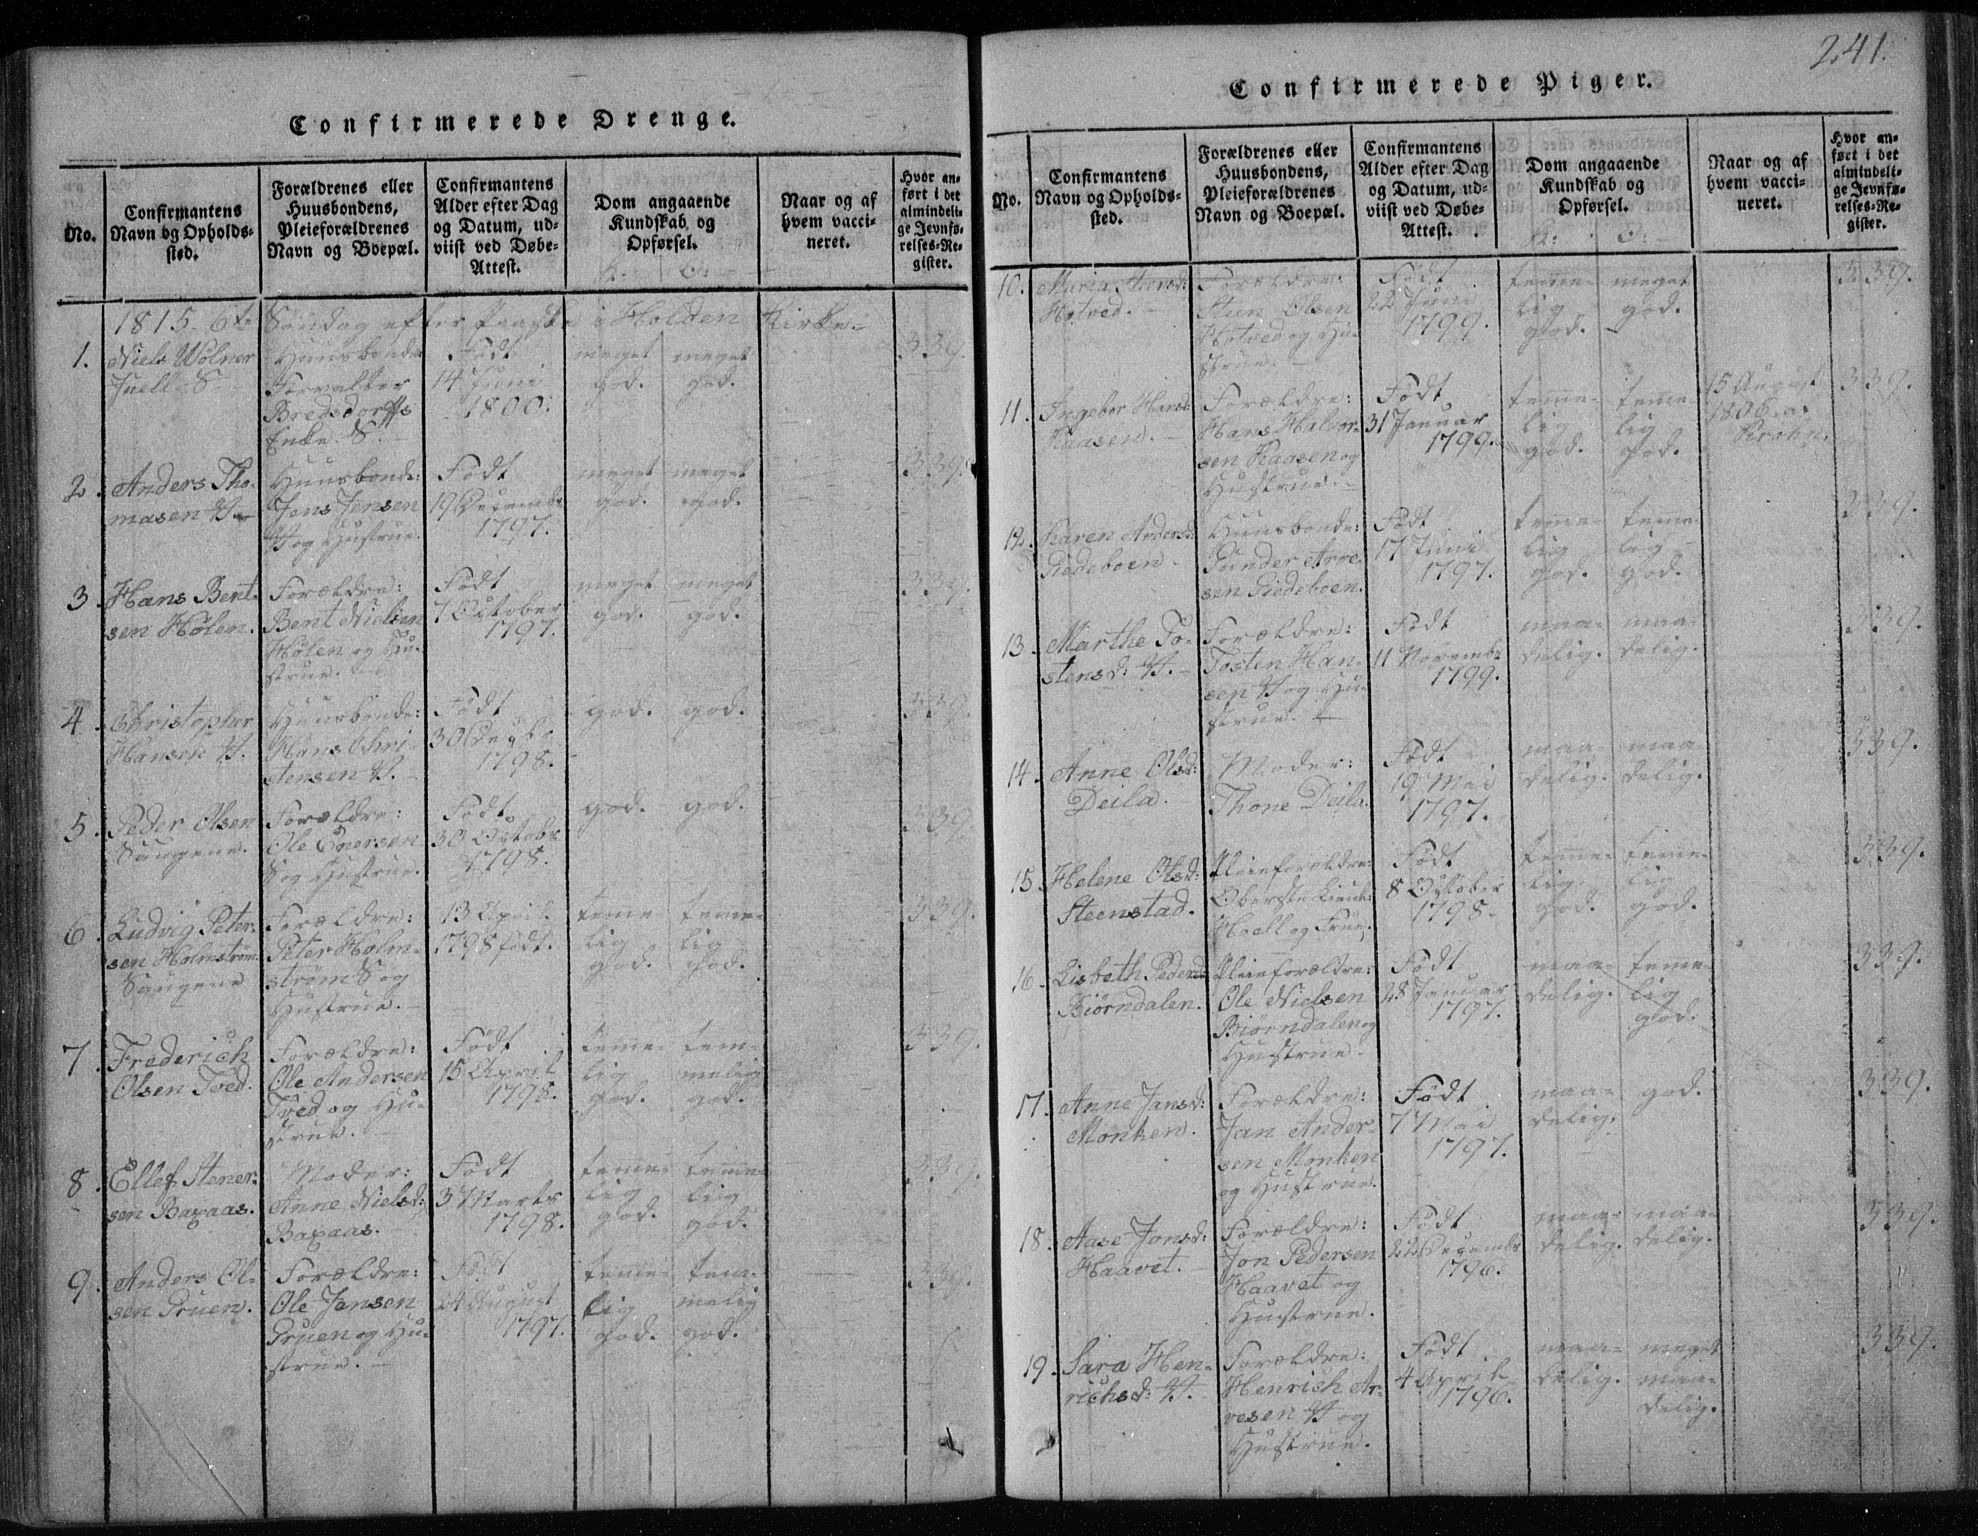 241.
Confirmerede Drenge.
No.
Confirmantens Navn og Opholds-sted.
Forældrenes eller Huusbondens, Pleieforældrenes Navn og Boepæl.
Confirmantens Alder efter Dag og Datum, ud-viist ved Døbe-Attest.
Dom angaaende Kundskab og Opførsel.
K. O.
Naar og af hvem vacci-neret.
Hvor an-ført i det almindeli-ge Jevnfø-relses-Re-gister.
1815. 6te Søndag efter Paaske i Holden Kirke.
1.
Niels Wølner
Juell S
Huusbonde
Forvalter
Bredsdorffs
Enke S.
Født
14 Juni
1800.
meget
god.
meget
god.
339.
2.
Anders Tho-
masen V.
Huusbonde:
Jens Jensen
V og Hustrue.
Født
19 Decembr
1797.
meget
god.
meget
god.
339.
3.
Hans Bent-
sen Hølen.
Forældre:
Bent Nielsen
Hølen og Hu-
strue.
Født
7 October
1797.
meget
god.
meget
god.
339.
4.
Christopher
Hansen V.
Huusbonde:
Hans Chri-
stensen V.
Født
30
1798.
god.
god.
339.
5.
Peder Olsen
Saugene.
Forældre:
Ole Enersen
S og Hustrue.
Født
30 Octobr
1798.
god.
god.
339.
6.
Ludvig Peter-
sen Holmstrøm
Saugene
Forældre:
Peter Holm-
strøm S og
Hustrue.
13 April
1798 født.
teme-
lig
god.
teme-
lig
god.
339.
7.
Frederich
Olsen Tved.
Forældre:
Ole Andersen
Tved og Hu-
strue.
Født
15 April
1798.
teme-
lig
god.
tem-
melig
god.
339.
8.
Ellef Stener-
sen Baxaas.
Moder:
Anne Nielsd:
Baxaas.
Født
3 Marts
1798.
teme-
lig
god.
teme-
lig
god.
339.
9.
Anders Ol-
sen Pruen.
Forældre:
Ole Jansen
Pruen og Hu-
strue.
Født
24 August
1797.
teme-
lig
god.
tem-
melig
god.
339.
Confirmerede Piger.
No.
Confirmantens Navn og Opholds-sted.
Forældrenes eller Huusbondens, Pleieforældrenes Navn og Boepæl.
Confirmantens Alder efter Dag og Datum, ud-viist ved Døbe-Attest.
Dom angaaende Kundskab og Opførsel.
K: O:
Naar og af hvem vacci-neret.
Hvor an-ført i det almindeli-ge Jevnfø-relses-Re-gister.
10.
Maria Steensd:
Hotved.
Forældre:
Steen Olsen
Hotved og Hu-
strue.
Født
22 Juni
1799.
teme-
lig
god.
meget
god.
339.
11.
Ingebor Hansd:
Kaasen.
Forældre:
Hans Halvor-
sen Kaasen og
Hustrue.
Født
31 Januar
1799.
teme-
lig
god.
teme-
lig
god.
15 August
1806 a
339.
12.
Karen Andersd:
Giedeboen.
Huusbonde:
Gunder Arve-
sen Giedeboen.
Født
17 Juni
1797.
teme-
lig
god.
teme-
lig
god.
339.
13.
Marthe To-
stensd: V.
Forældre:
Tosten Han-
sen V og Hu-
strue.
Født
11 Novembr
1799.
maa-
delig.
maa-
delig.
339.
14.
Anne Olsd:
Deila.
Moder:
Thone Deila.
Født
19 Mai
1797.
maa-
delig.
maa-
delig.
339.
15.
Helene Olsd:
Steenstad.
Pleieforældre:
Oberste Lieut:
Hoell og Frue.
Født
8 October
1798.
teme-
lig
god.
teme-
lig
god.
339.
16.
Lisbeth Pedersd
Biørndalen.
Pleieforældre:
Ole Nielsen
Biørndalen og
Hustrue.
Født
28 Januar
1797.
maa-
delig.
teme-
lig
god.
339.
17.
Anne Jansd:
Monken.
Forældre:
Jan Ander-
sen Monken
og Hustrue.
Født
7 Mai
1797.
maa-
delig.
god.
339.
18.
Aase Jonsd:
Haavet.
Forældre:
Jon Pedersen
Haavet og
Hustrue.
Født
22 Decembr
1796.
maa-
delig.
maa-
delig.
339.
19.
Sara Hen-
richsd: V.
Forældre:
Henrich Ar-
vesen V og
Hustrue.
Født
4 April
1796.
maa-
delig.
meget
maa-
delig.
339.